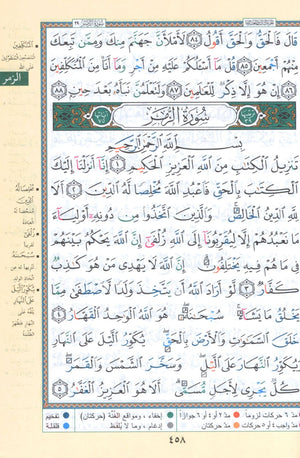 قَالَ فَٱلْحَقُّ وَٱلْحَقَّ أَقُولُ ٨٤ لَأَمْلَأَنَّ جَهَنَّمَ مِنكَ وَمِمَّن تَبِعَكَ
مِنْهُمْ أَجْمَعِينَ ٨٥ قُلْ مَآ أَسْـَٔلُكُمْ عَلَيْهِ مِنْ أَجْرٍ وَمَآ أَنَا۠ مِنَ ٱلْمُتَكَلِّفِينَ
٨٦ إِنْ هُوَ إِلَّا ذِكْرٌ لِّلْعَٰلَمِينَ ٨٧ وَلَتَعْلَمُنَّ نَبَأَهُۥ بَعْدَ حِينٍۭ ٨٨
سُورَةُ الزُّمَرِ
بِسْمِ ٱللَّهِ ٱلرَّحْمَٰنِ ٱلرَّحِيمِ
تَنزِيلُ ٱلْكِتَٰبِ مِنَ ٱللَّهِ ٱلْعَزِيزِ ٱلْحَكِيمِ ١ إِنَّآ أَنزَلْنَآ إِلَيْكَ
ٱلْكِتَٰبَ بِٱلْحَقِّ فَٱعْبُدِ ٱللَّهَ مُخْلِصًا لَّهُ ٱلدِّينَ ٢ أَلَا
لِلَّهِ ٱلدِّينُ ٱلْخَالِصُ ۚ وَٱلَّذِينَ ٱتَّخَذُوا۟ مِن دُونِهِۦٓ أَوْلِيَآءَ
مَا نَعْبُدُهُمْ إِلَّا لِيُقَرِّبُونَآ إِلَى ٱللَّهِ زُلْفَىٰٓ إِنَّ ٱللَّهَ يَحْكُمُ بَيْنَهُمْ
فِى مَا هُمْ فِيهِ يَخْتَلِفُونَ ۗ إِنَّ ٱللَّهَ لَا يَهْدِى مَنْ هُوَ كَٰذِبٌ
كَفَّارٌ ٣ لَّوْ أَرَادَ ٱللَّهُ أَن يَتَّخِذَ وَلَدًا لَّٱصْطَفَىٰ مِمَّا
يَخْلُقُ مَا يَشَآءُ ۚ سُبْحَٰنَهُۥ ۖ هُوَ ٱللَّهُ ٱلْوَٰحِدُ ٱلْقَهَّارُ ٤
خَلَقَ ٱلسَّمَٰوَٰتِ وَٱلْأَرْضَ بِٱلْحَقِّ ۖ يُكَوِّرُ ٱلَّيْلَ عَلَى ٱلنَّهَارِ
وَيُكَوِّرُ ٱلنَّهَارَ عَلَى ٱلَّيْلِ ۖ وَسَخَّرَ ٱلشَّمْسَ وَٱلْقَمَرَ ۖ
كُلٌّ يَجْرِى لِأَجَلٍ مُّسَمًّى ۗ أَلَا هُوَ ٱلْعَزِيزُ ٱلْغَفَّٰرُ ٥
الزمر
مد ٦ حركات لزوماً مد ٢ أو ٤ أو ٦ جوازاً إخفاء، ومواقع الغُنَّة (حركتان) تفخيم
مد واجب ٤ أو ٥ حركات مد حركتان إدغام، وما لا يُلفَظ قلقلة
٤٥٨